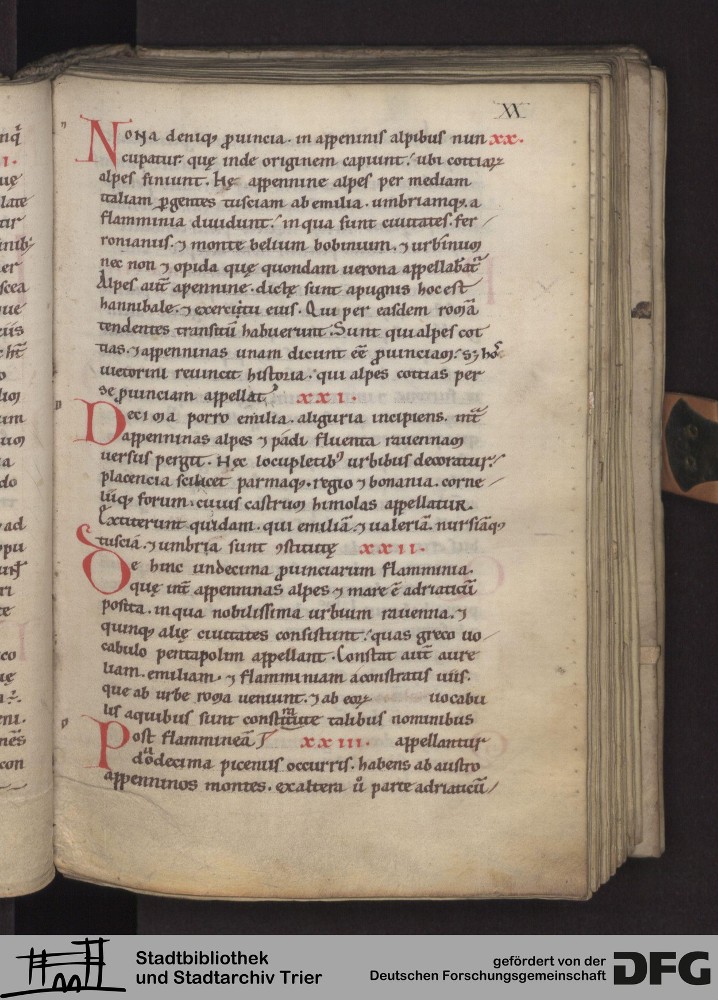 XX
Nona deniq; ꝓuincia. in appeninis alpibus nun xx.
cupatur quę inde originem capiunt. ubi cottiaꝝ
alpes finiunt. Hę appennine alpes per mediam
italiam ꝑgentes tusciam ab emilia. umbriamq;. a
flamminia diuidunt. in qua sunt ciuitates. fer
ronianus. ⁊ monte belium bobinum. ⁊ urbinum
nec non ⁊ opida quę quondam uerona appellabat᷑
Alpes aut̄ apennine. dictę sunt apugnis hoc est
hannibale. ⁊ exercitu eius. Qui per easdem romā
tendentes transitū habuerunt. Sunt qui alpes cot
tias. ⁊ appenninas unam dicunt eē ꝓuinciam. sꝫ hos
uictorini reuincit historia. qui alpes cottias per
se ꝓuinciam appellat. xxi.
Decima porro emilia. aliguria incipiens. int̄
appenninas alpes ⁊ padi fluenta rauennam
uersus pergit. Hec locupletib; urbibus decoratur.
placencia scilicet parmaq;. regio ⁊ bonania. corne
liiq; forum. cuius castrum himolas appellatur.
Extiterunt quidam. qui emiliā ⁊ ualeriā. nursiāq;
tusciā. ⁊ umbria sunt ꝯstitutę xxii.
De hinc undecima ꝓuinciarum flamminia.
quę int̄ appenninas alpes ⁊ mare ē adriaticū
posita. in qua nobilissima urbium rauenna. ⁊
quinq; alię ciuitates consistunt. quas greco uo
cabulo pentapolim appellant. Constat aut̄ aure
liam. emiliam. ⁊ flamminiam aconstratis uiis.
que ab urbe roma ueniunt. ⁊ ab eoꝝ uocabu
lis aquibus sunt constitute talibus nominibus
Post flammineā xxiii. appellantur
duodecima picenus occurris. habens ab austro
appenninos montes. exaltera ů parte adriaticū
Stadtbibliothek
und Stadtarchiv Trier
gefördert von der
Deutschen Forschungsgemeinschaft DFG